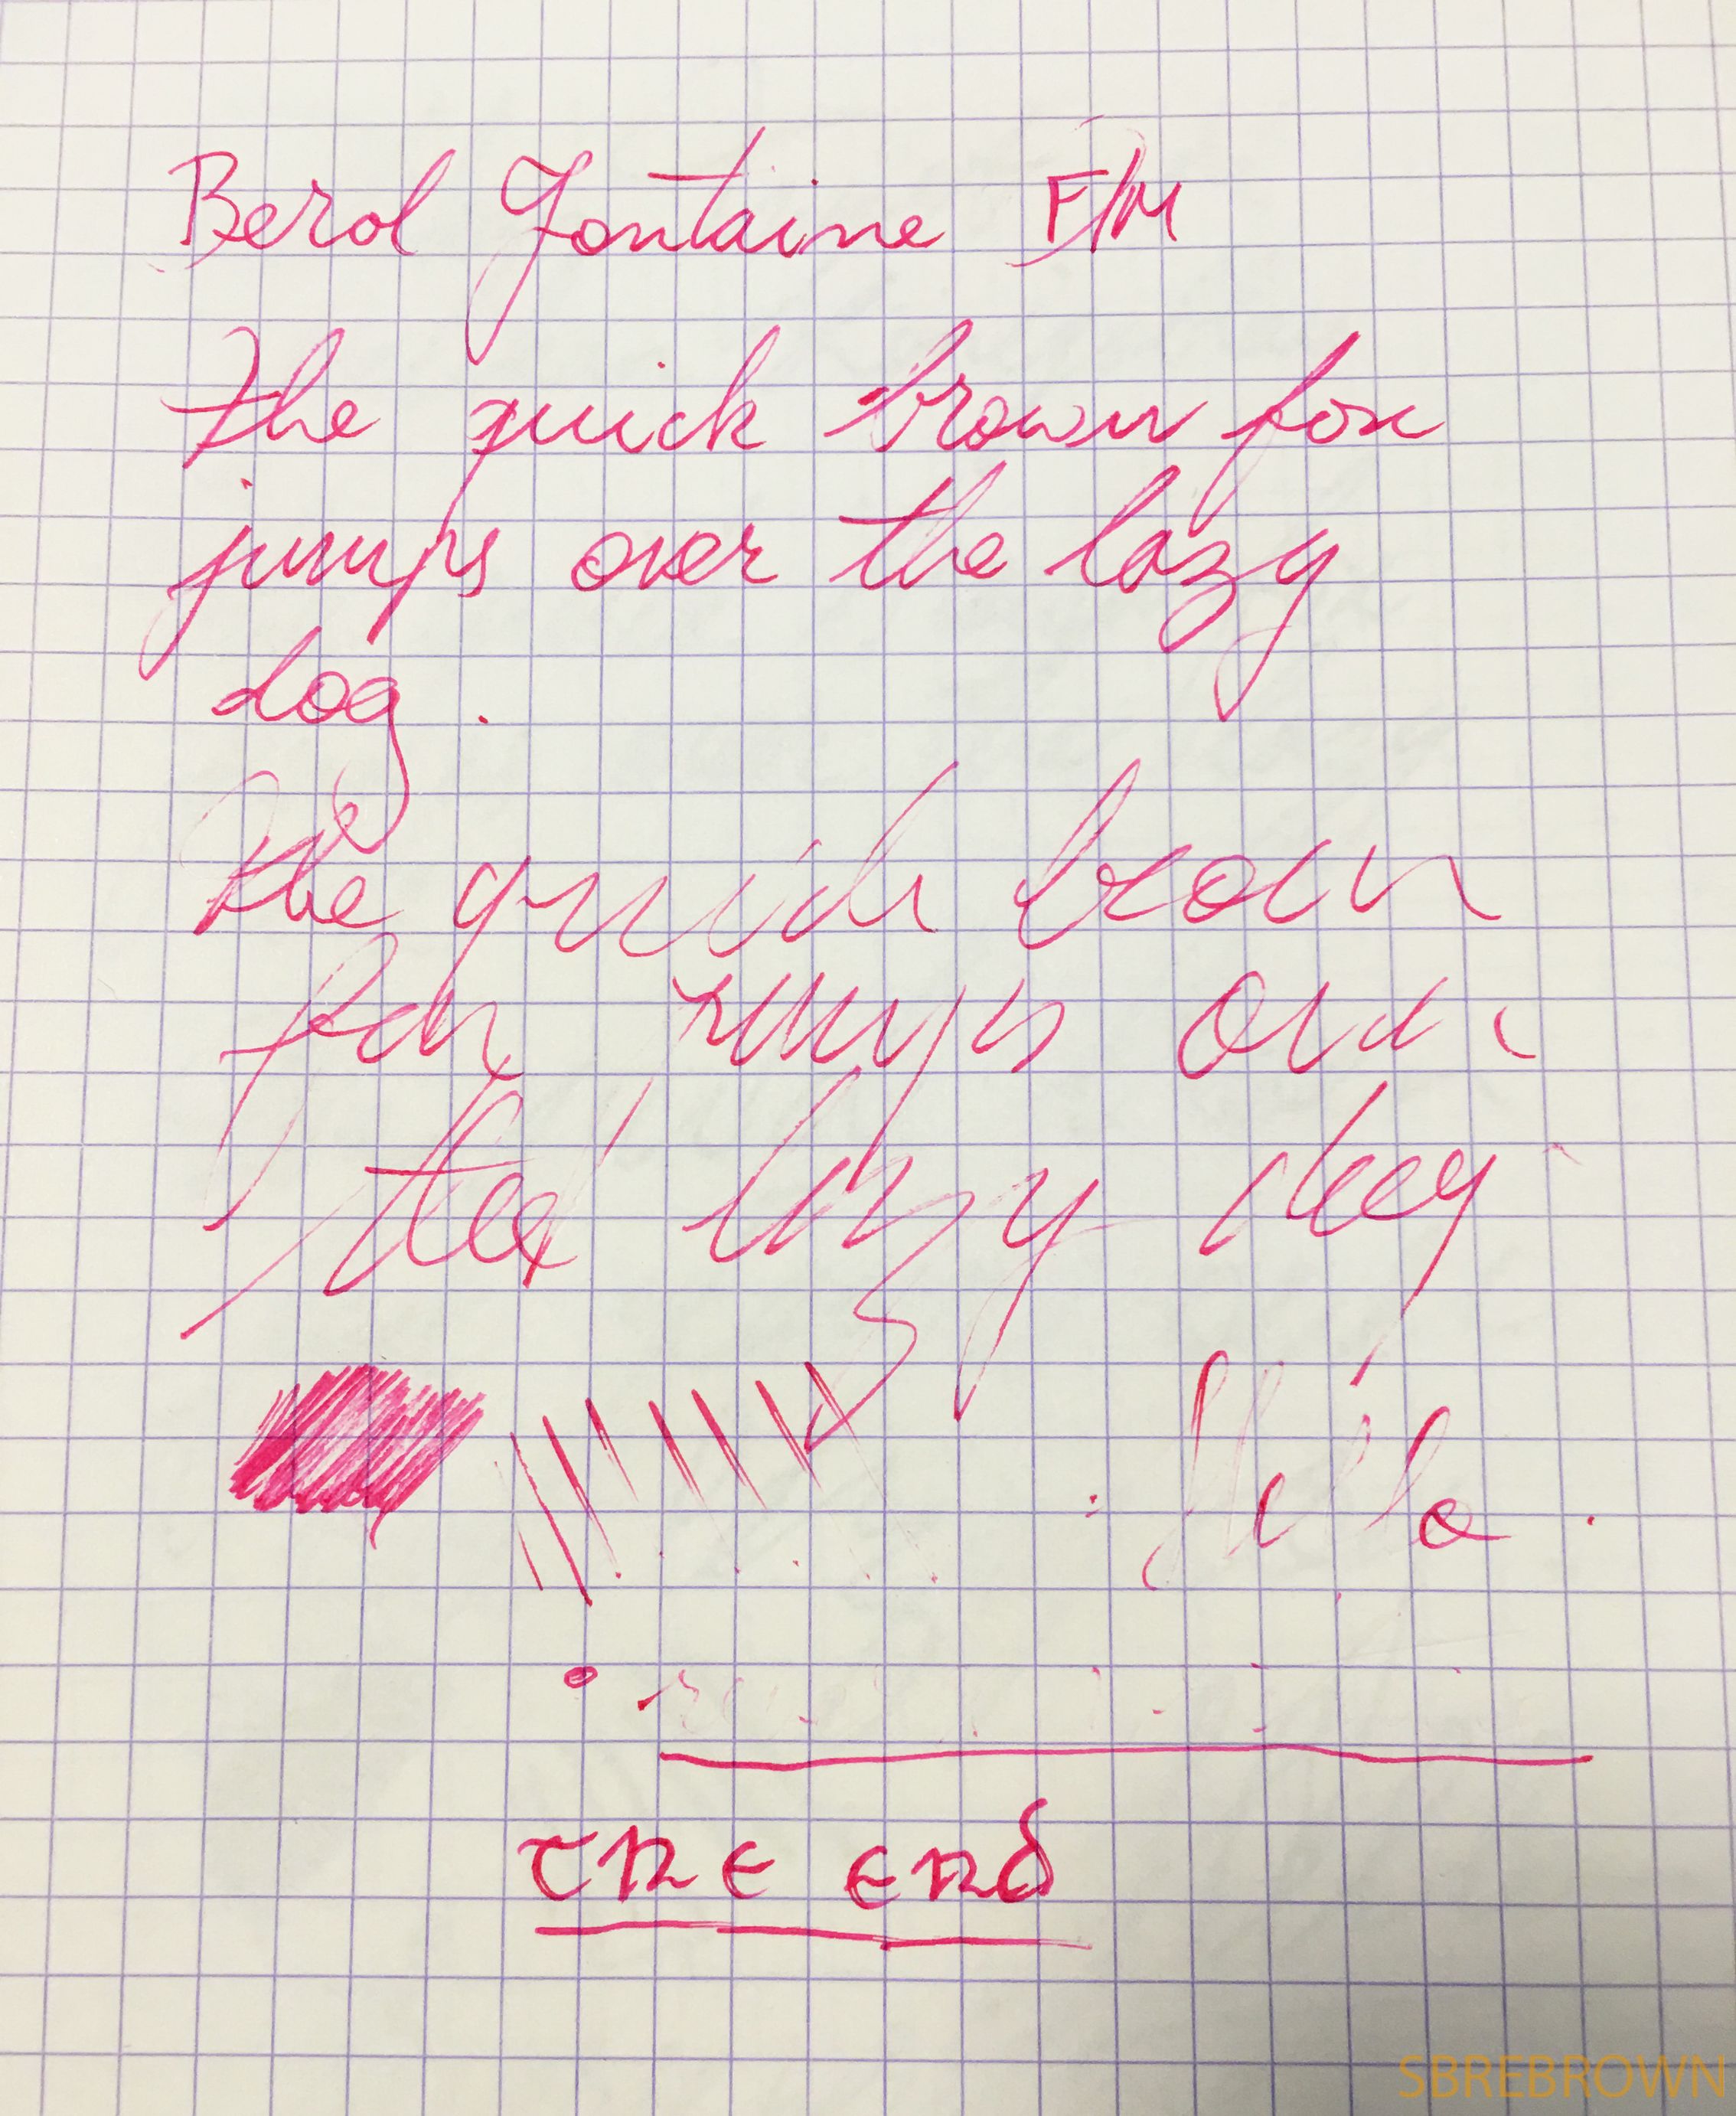 Berol Fontaine F/M
The quick brown fox
jumps over the lazy
dog.
The quick brown
fox jumps over
the lazy dog
the end
SBREBROWN